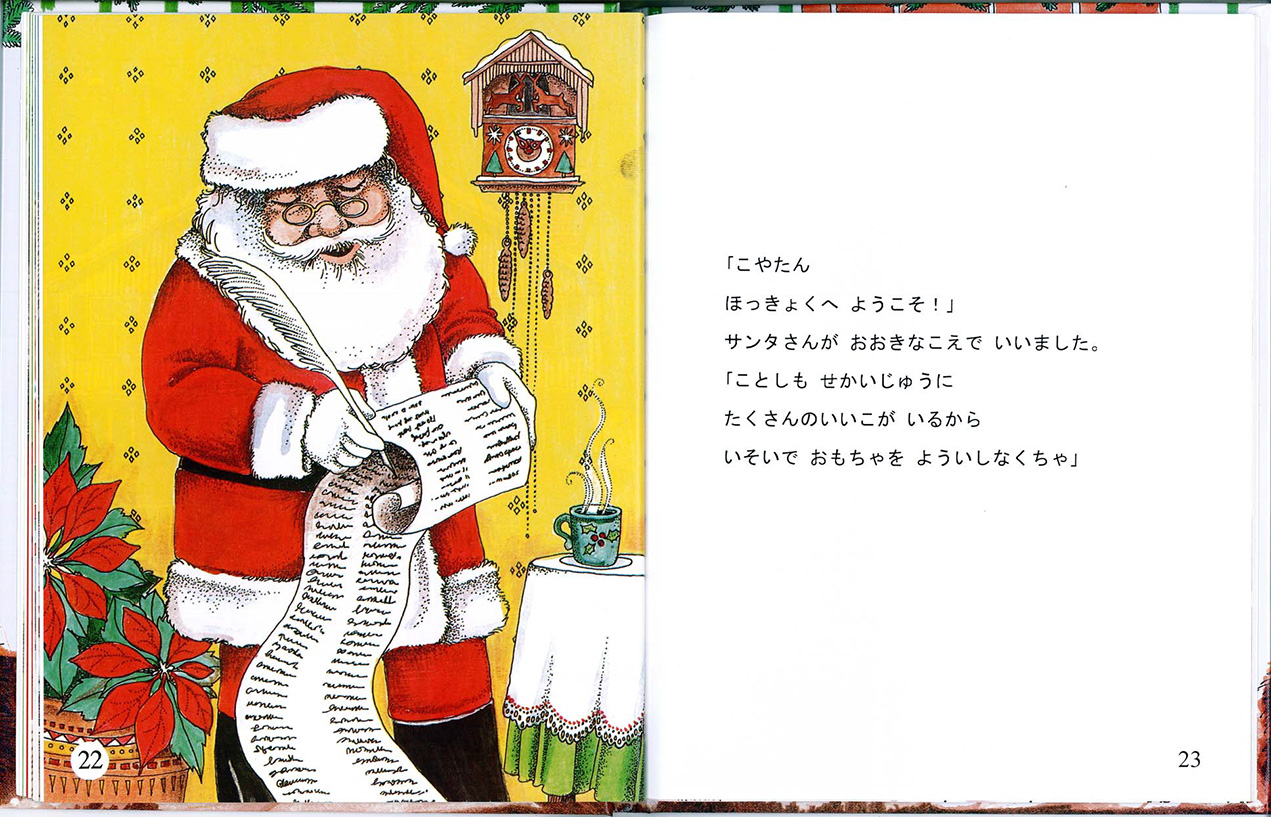 「こやたん
ほっきょくへ ようこそ！」
サンタさんが おおきなこえで いいました。
「ことしも せかいじゅうに
たくさんのいいこが いるから
いそいで おもちゃを よういしなくちゃ」
22
23